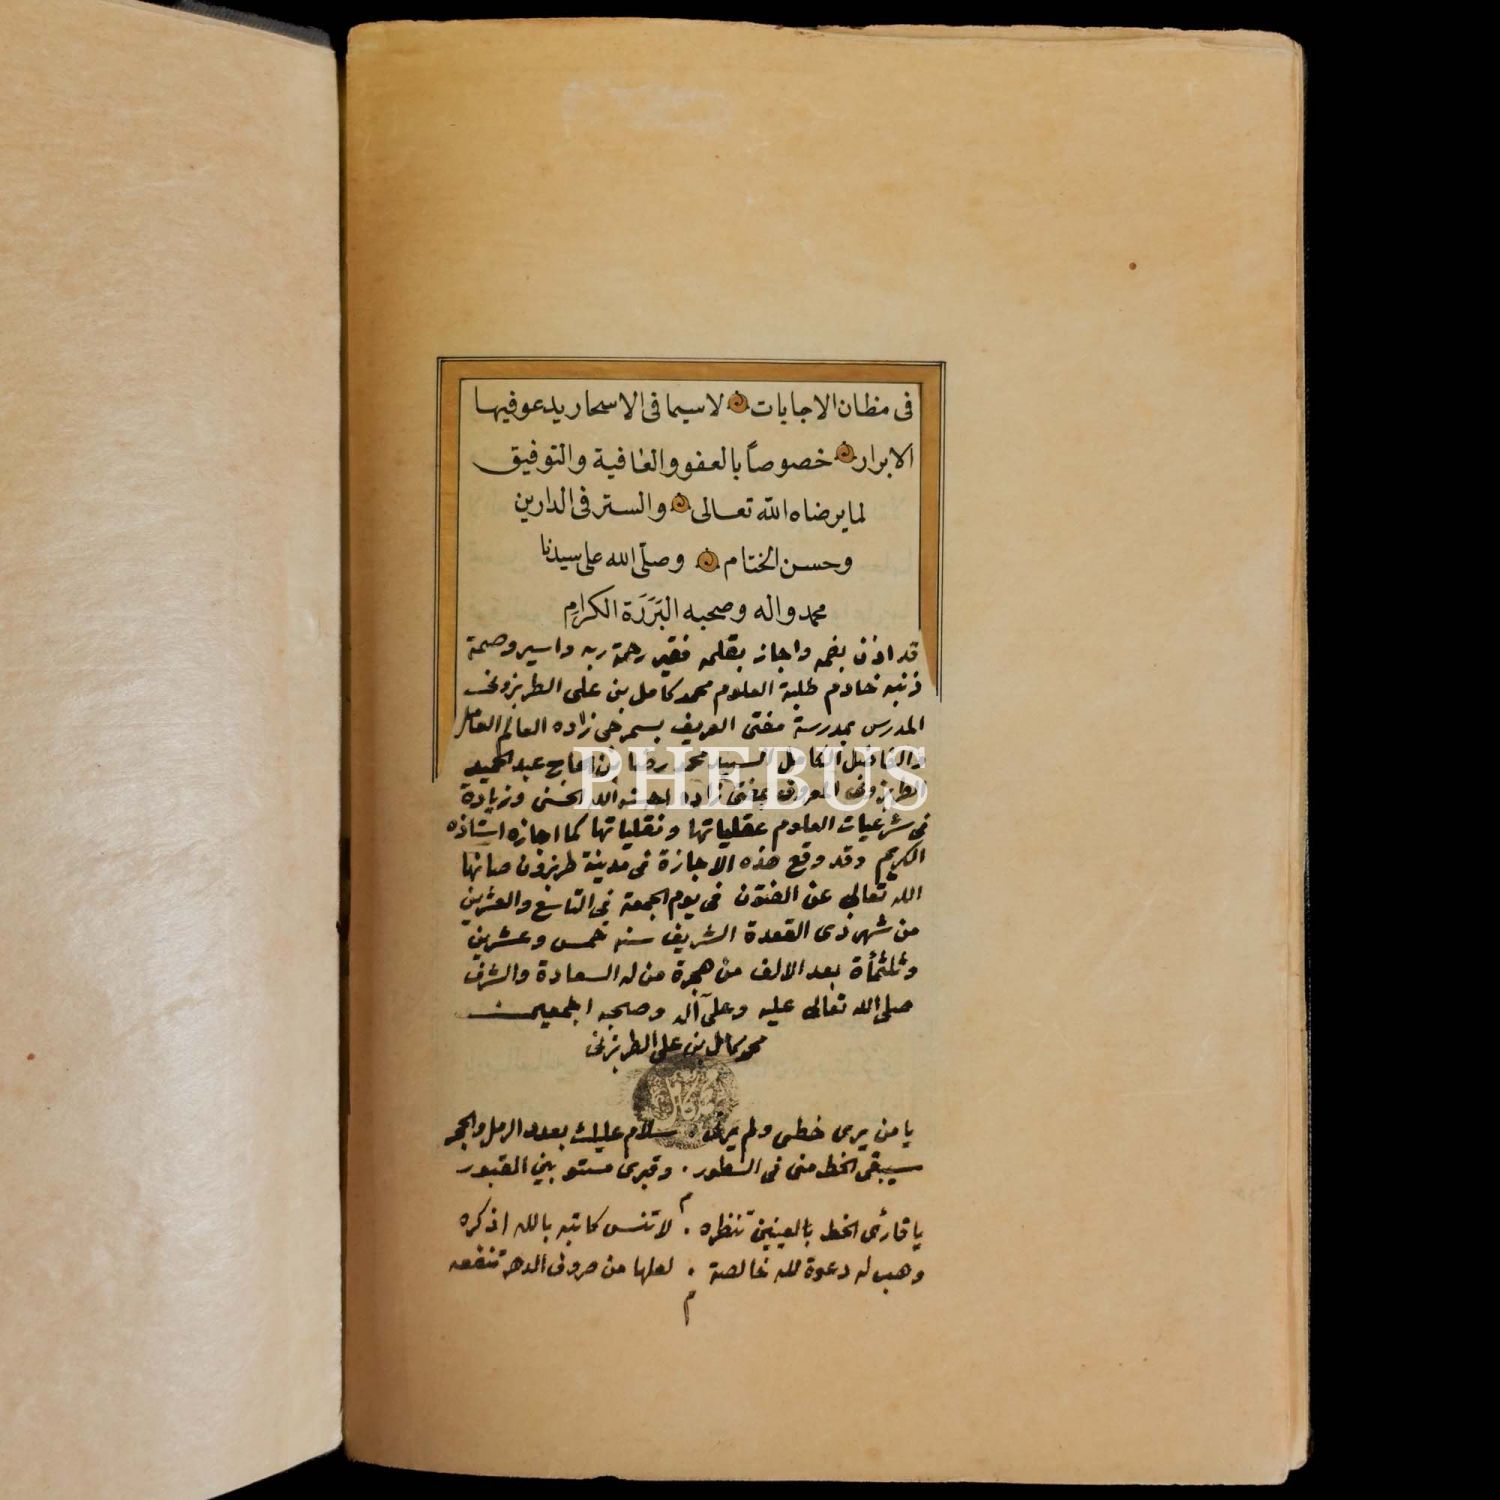 فى مظان الاجابات لاسيما فى الاسحار يدعو فيها
الابرار خصوصاً بالعفو والعافية والتوفيق
لما يرضاه الله تعالى والستر فى الدارين
وحسن الختام وصلّى الله على سيدنا
محمد واله وصحبه البَرَرَة الكرامِ
قد اذن بفمه واجاز بقلمه فقير رحمة ربه واسير وصمة
ذنبه خادم طلبة العلوم محمد كامل بن على الطربزونى
المدرس بمدرسة مفتى العريف زاده العالم العامل
والفاضل الكامل السيد محمد رضا بن الحاج عبد الحميد
الطربزونى المعروف بمفتى زاده احسنه الله الحسنى وزيادة
فى شرعيات العلوم عقلياتها ونقلياتها كما اجازه استاذه
الكريم وقد وقع هذه الاجازة فى مدينة طربزون صانها
الله تعالى عن الفتون فى يوم الجمعة فى التاسع والعشرين
من شهر ذى القعدة الشريف سنه خمس وعشرين
وثلثمأة بعد الالف من هجرة من له السعادة والشرف
صلى الله تعالى عليه وعلى آله وصحبه اجمعين
محمد كامل بن على الطربزونى
يا من يرى خطى ولم يرنى . سلام عليك بعدد الرمل والحجر
سيبقى الخط منى فى السطور . وقبرى مستو بين القبور
م
يا قارئ الخط بالعينين تنظره . لا تنس كاتبه بالله اذكره
وهب له دعوة لله خالصة . لعلها من صروف الدهر تنفعه
م
PHEBUS